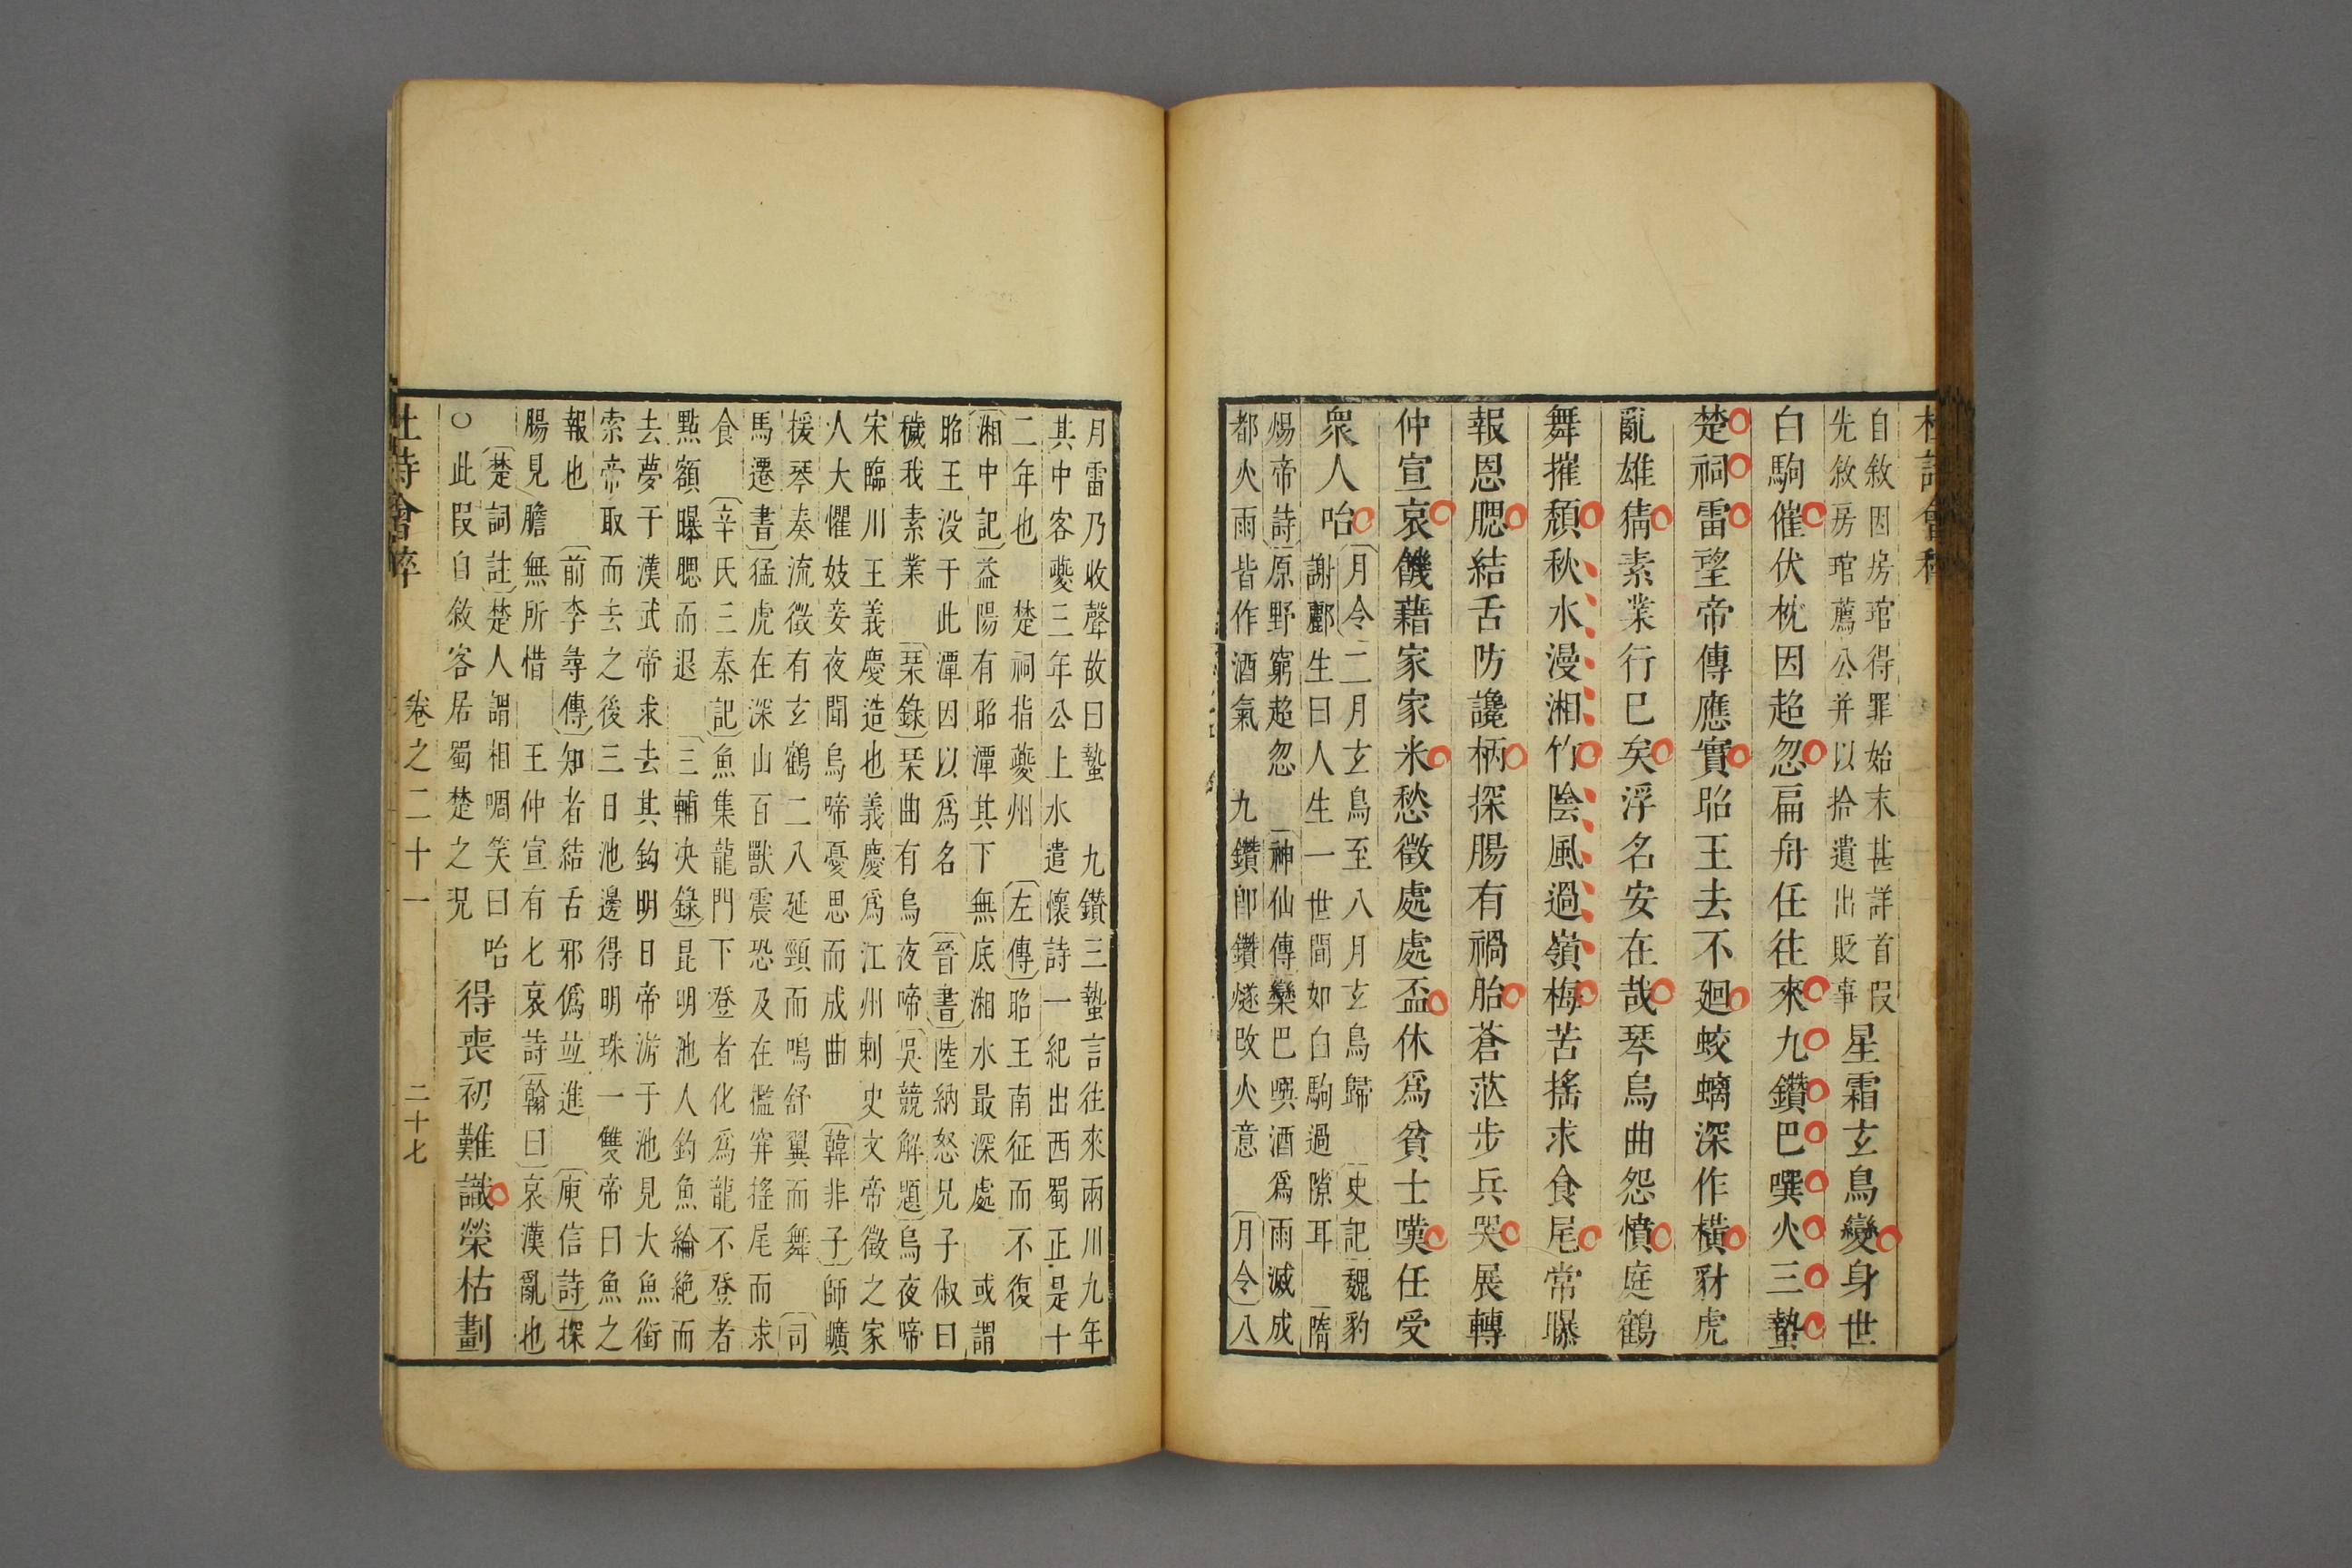 杜詩會稡
自敘因房琯得罪始末甚詳首叚
先敘房琯薦公并以拾遺出貶事
星霜玄鳥變身世
白駒催伏枕因超忽扁舟任往來九鑽巴噀火三蟄
楚祠雷望帝傳應實昭王去不廻蛟螭深作橫豺虎
亂雄猜素業行巳矣浮名安在哉琴烏曲怨憤庭鶴
舞摧頹秋水漫湘竹陰風過嶺梅苦搖求食尾常曝
報恩腮結舌防讒柄探腸有禍胎蒼茫步兵哭展轉
仲宣哀饑藉家家米愁徵處處盃休爲貧士嘆任受
衆人咍
月令二月玄鳥至八月玄鳥歸 史記魏豹
謝酈生曰人生一世間如白駒過隙耳 隋
煬帝詩原野窮超忽 神仙傳欒巴噀酒爲雨滅成
都火雨皆作酒氣 九鑽卽鑽燧改火意 月令八
月雷乃收聲故曰蟄 九鑽三蟄言往來兩川九年
其中客夔三年公上水遣懷詩一紀出西蜀正是十
二年也 楚祠指夔州 左傳昭王南征而不復
湘中記益陽有昭潭其下無底湘水最深處 或謂
昭王没于此潭因以爲名 晉書陸納怒兄子俶曰
穢我素業 琹錄琹曲有烏夜啼吳競解題烏夜啼
宋臨川王義慶造也義慶爲江州刺史文帝徵之家
人大懼妓妾夜聞烏啼憂思而成曲 韓非子師曠
援琴奏流徵有玄鶴二八延頸而鳴舒翼而舞 司
馬遷書猛虎在深山百獸震恐及在檻穽搖尾而求
食 辛氏三秦記魚集龍門下登者化爲龍不登者
點額曝腮而退 三輔决錄昆明池人釣魚綸絶而
去夢于漢武帝求去其鈎明日帝游于池見大魚銜
索帝取而去之後三日池邊得明珠一雙帝曰魚之
報也 前李㝷傳知者結舌邪僞竝進 庾信詩探
腸見膽無所惜 王仲宣有七哀詩翰曰哀漢亂也
楚詞註楚人謂相啁笑曰咍
○此叚自敘客居蜀楚之况
得喪初難識榮枯劃
杜詩會稡 卷之二十一 二十七